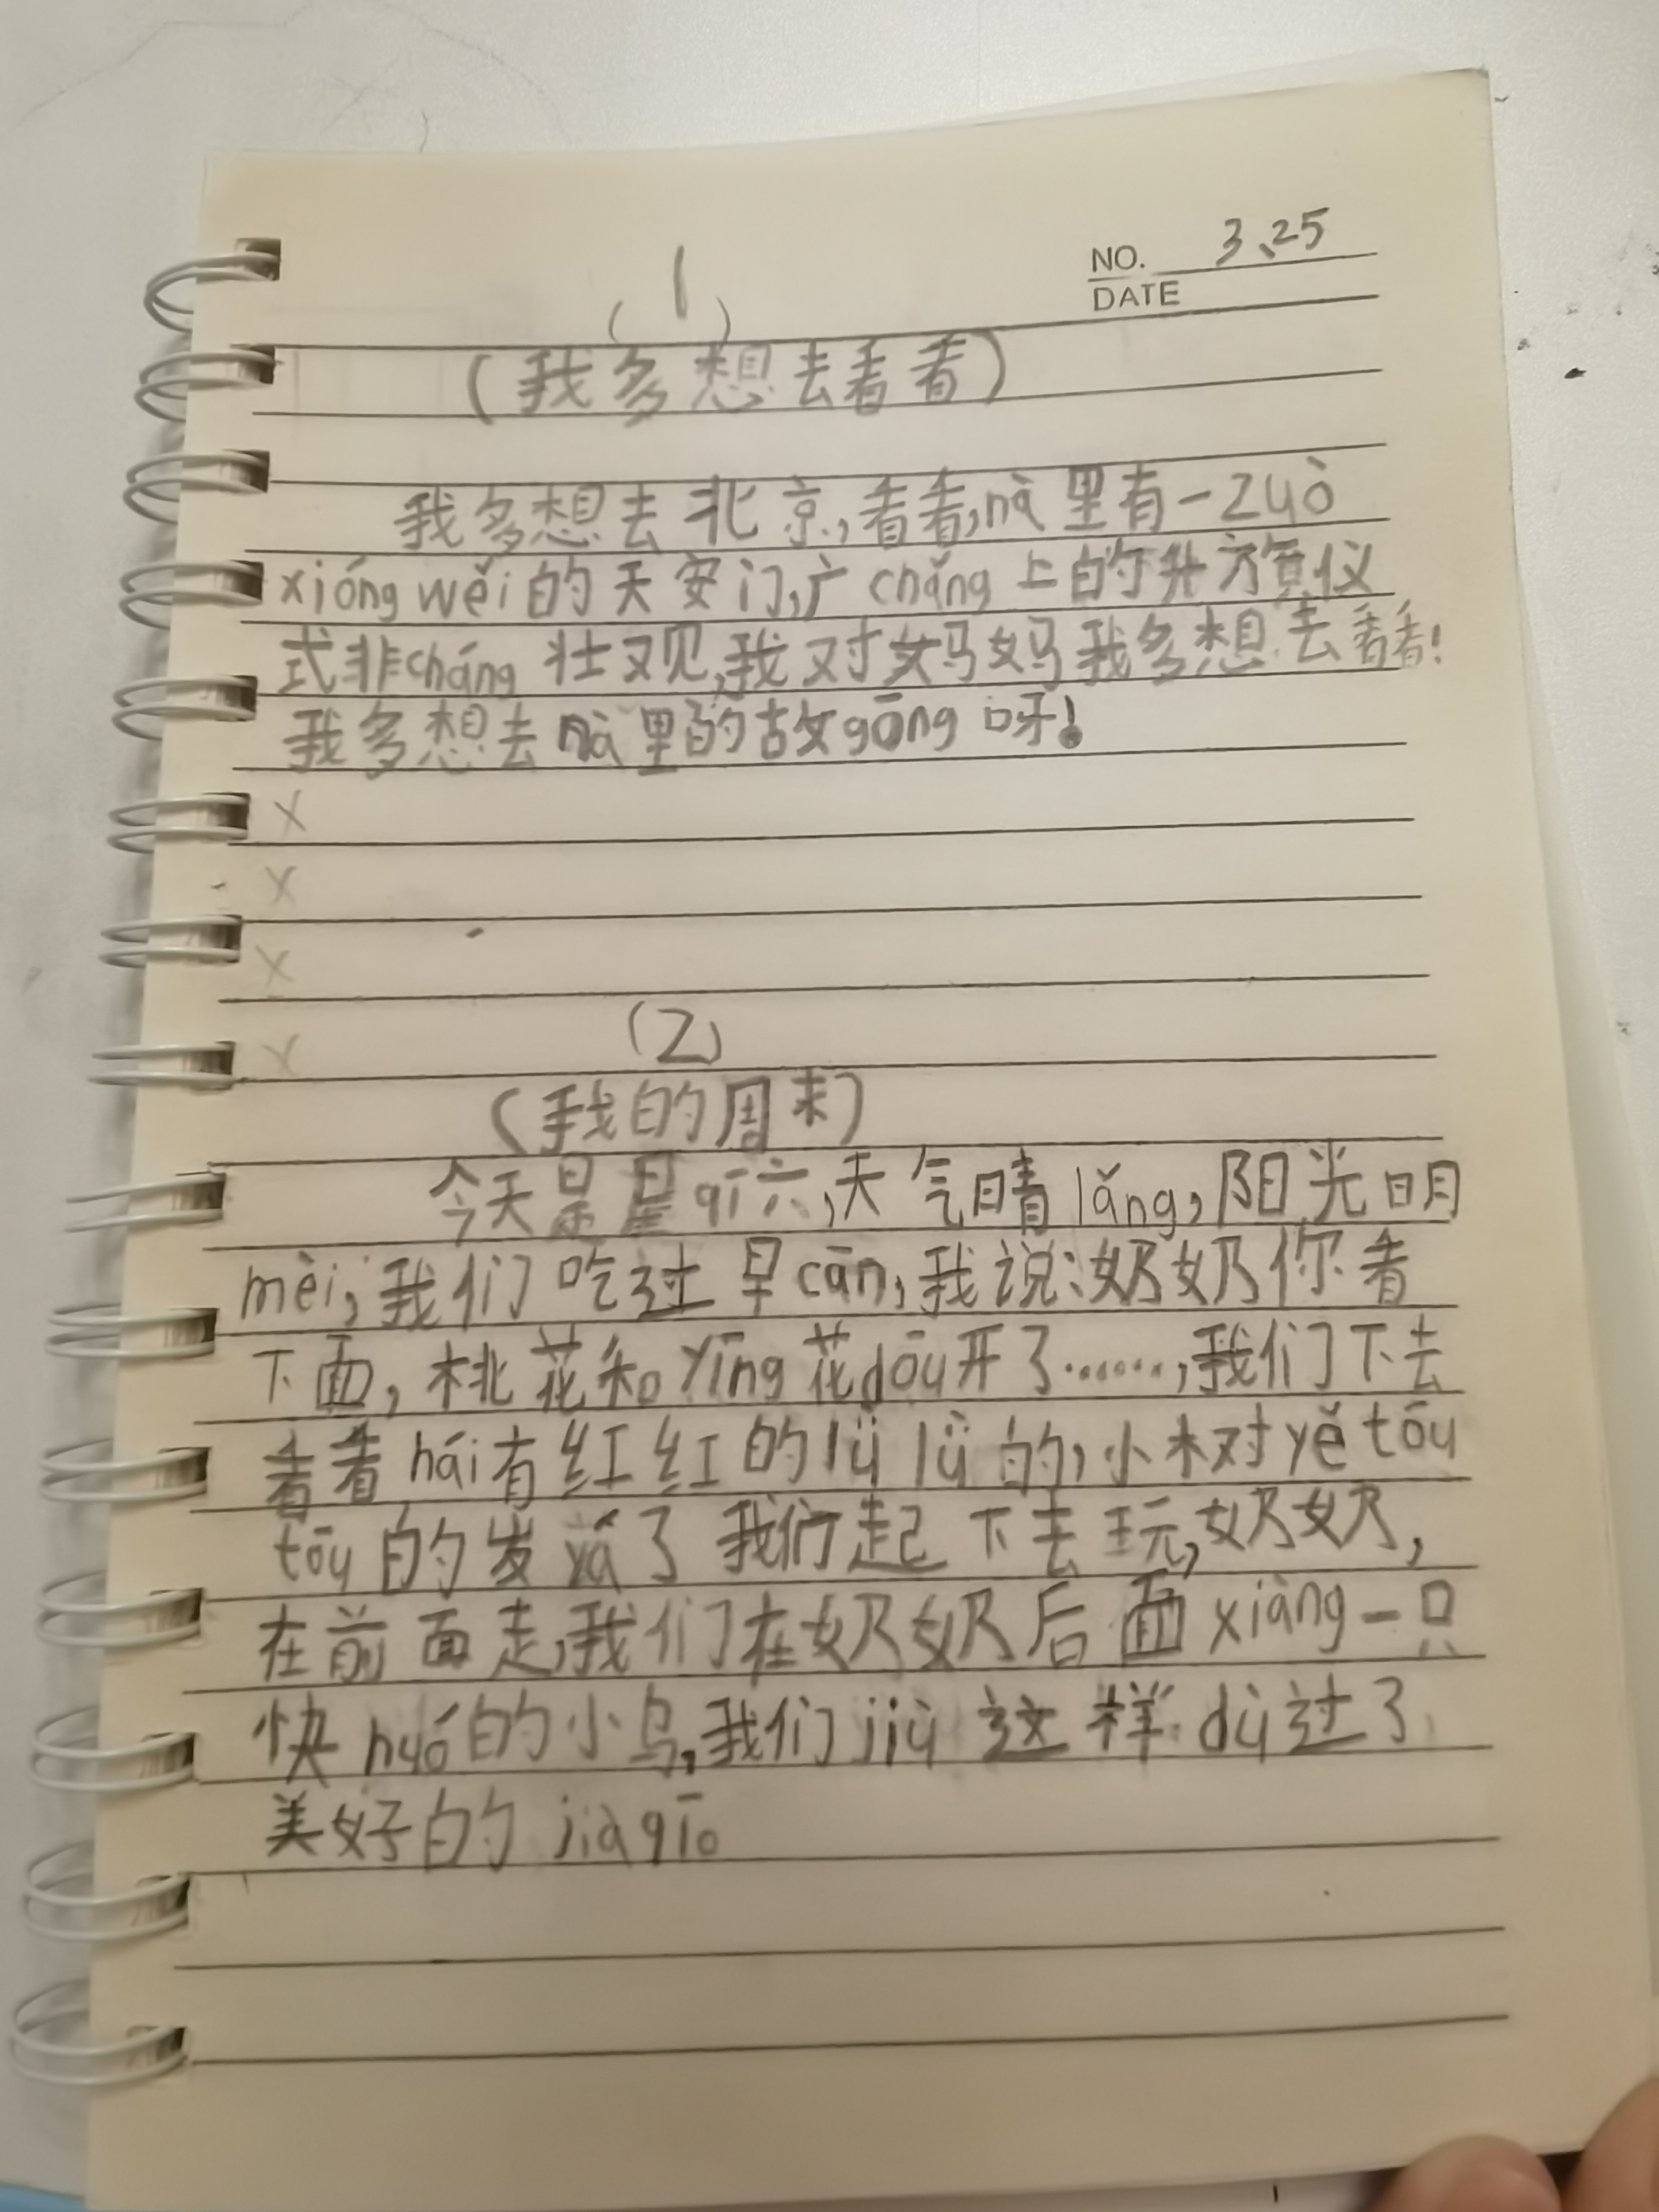 NO. 3、25
DATE
(1)
(我多想去看看)
我多想去北京,看看,nà里有一zuò
xióng wěi的天安门,广chǎng上的升旗仪
式非cháng壮观,我对妈妈我多想去看看!
我多想去nà里的故gōng呀!
x
x
x
x
(2)
(我的周末)
今天是星qī六,天气晴lǎng,阳光明
mèi,我们吃过早cān,我说:奶奶你看
下面,桃花和yīng花dōu开了……,我们下去
看看hái有红红的lǜ lǜ的,小树yě tōu
tōu的发yá了 我们起下去玩,奶奶,
在前面走,我们在奶奶后面xiàng一只
快huó的小鸟,我们jiù这样dù过了
美好的jià qī。